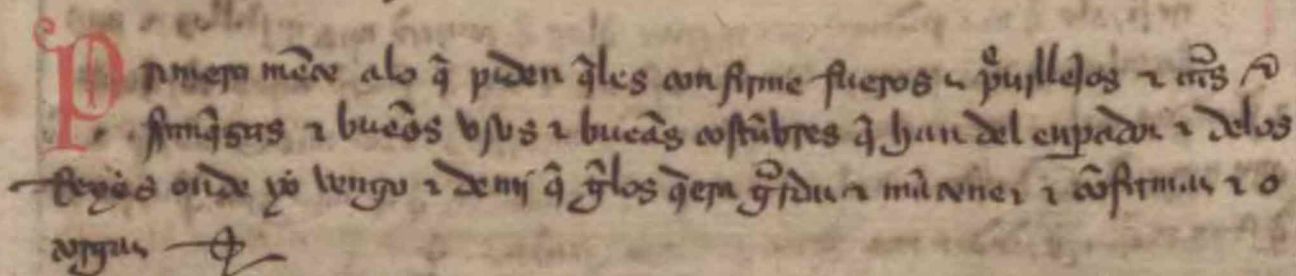 Primera mẽte alo q̃ piden q̃les confirme fueros ⁊ p̃uillejos ⁊ cartas ⁊
franq̃zas ⁊ buẽos vsos ⁊ buẽas costũbres q̃ han del enpador ⁊ delos
Reyes onde yo vengo ⁊ demj q̃ g̃los q̃era g̃rdar ⁊ mãtener ⁊ cõfirmar ⁊ o
torgar